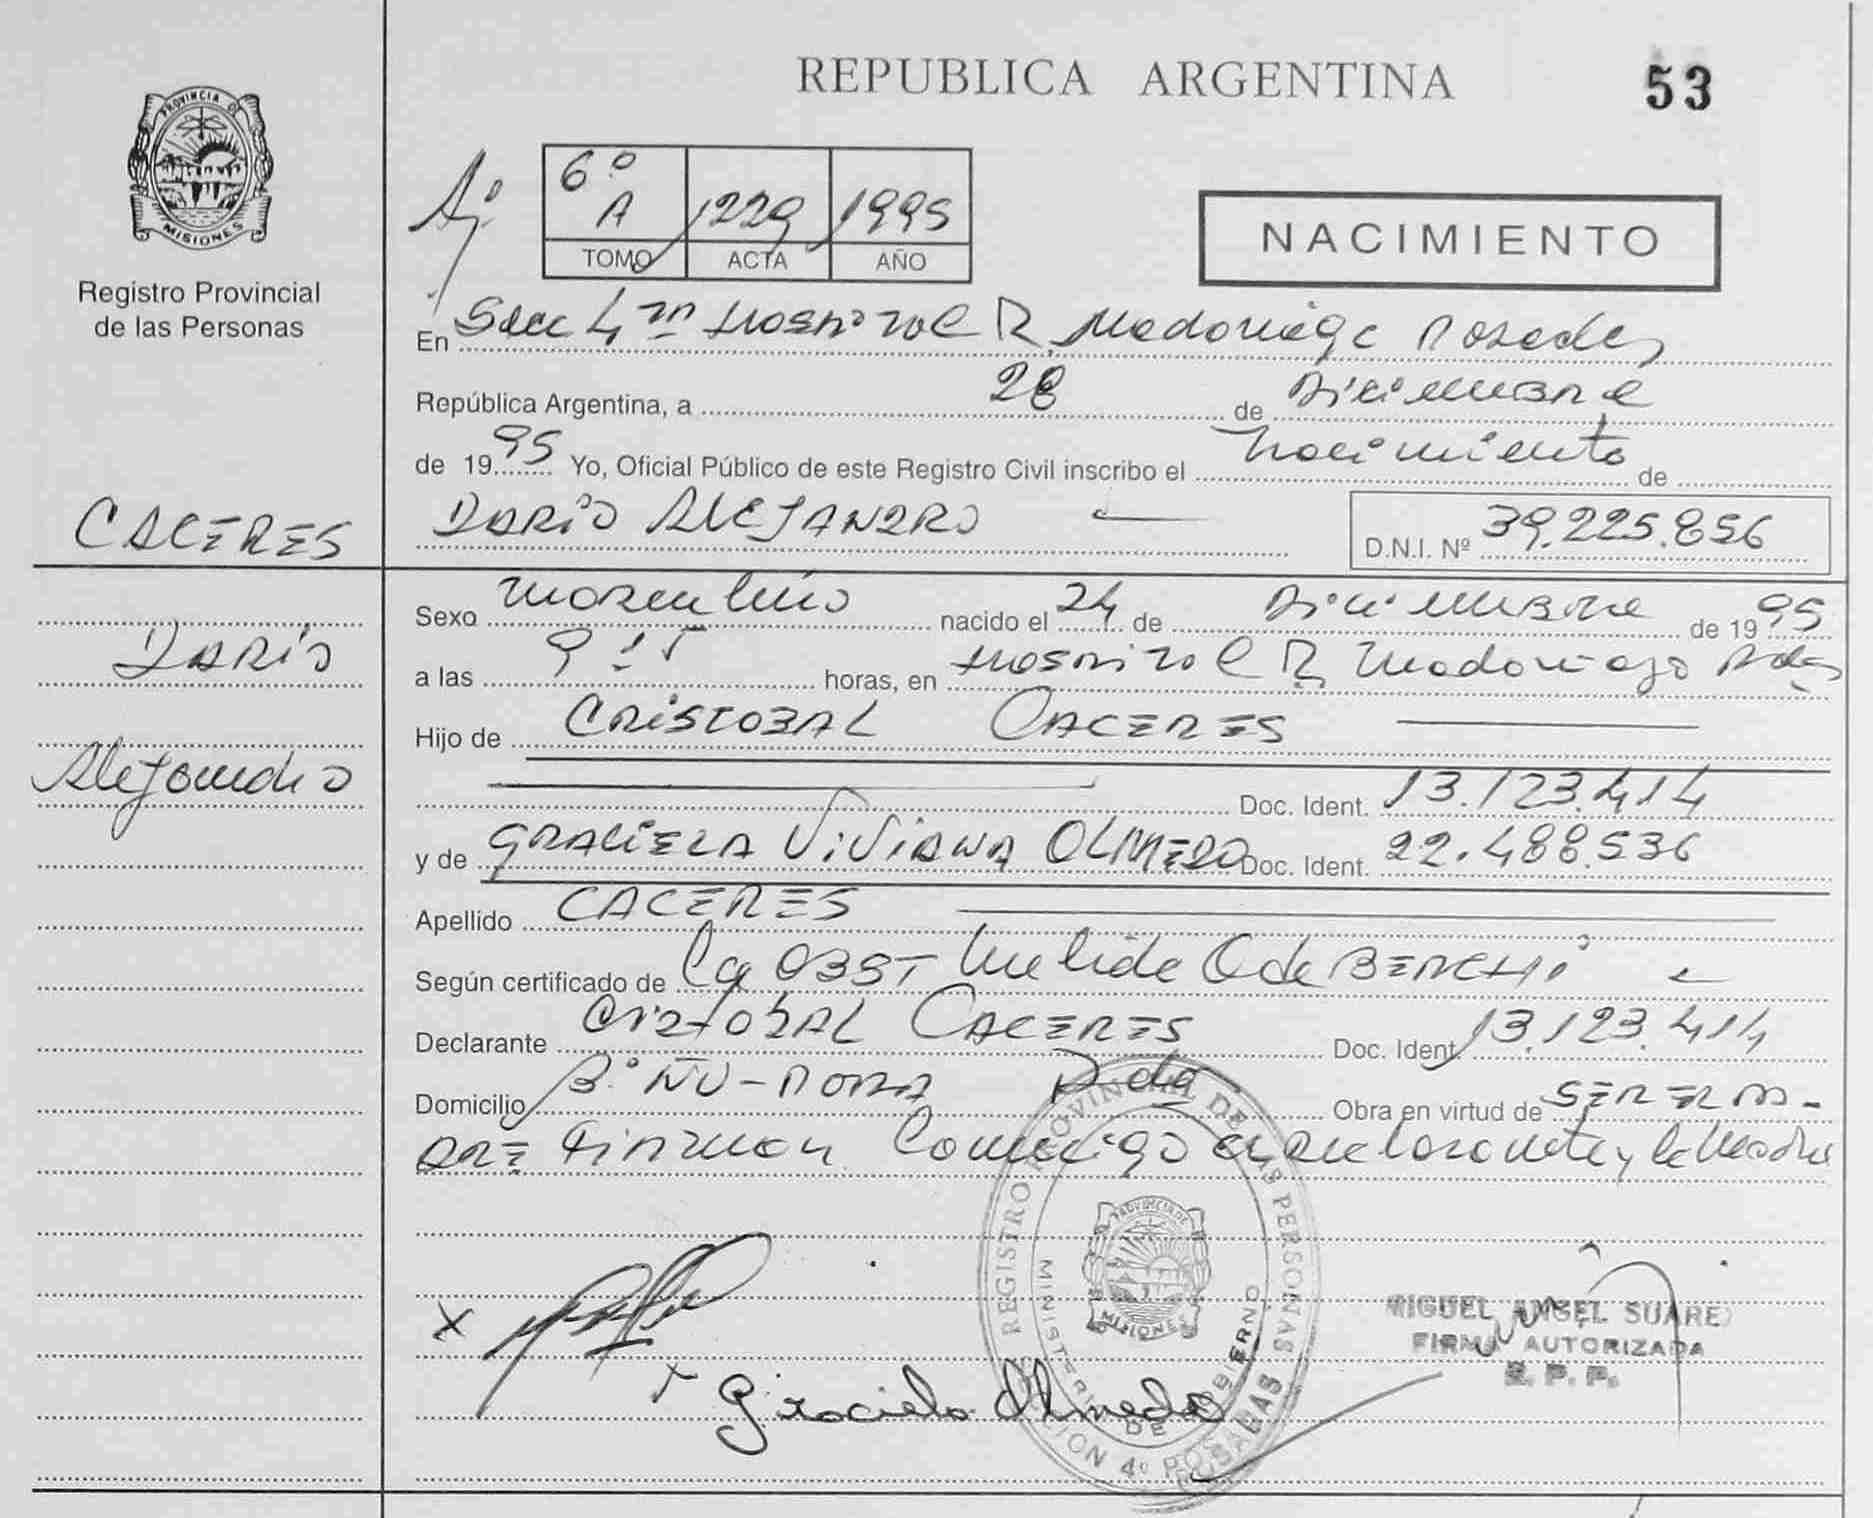 REPUBLICA ARGENTINA
53
PROVINCIA DE
MISIONES
Registro Provincial
de las Personas
6º
A 1229 1995
TOMO ACTA AÑO
NACIMIENTO
En Secc 4ta Hospital R. Madariaga Posadas
República Argentina, a 28 de Diciembre
de 1995 Yo, Oficial Público de este Registro Civil inscribo el Nacimiento de
CACERES
DARIO ALEJANDRO
D.N.I. Nº 39.225.856
Dario
Alejandro
Sexo Masculino nacido el 24 de Diciembre de 1995
a las 9:15 horas, en Hospital R. Madariaga Pdas
Hijo de CRISTOBAL CACERES
Doc. Ident. 13.123.414
y de GRACIELA VIVIANA OLMEDO Doc. Ident. 22.488.536
Apellido CACERES
Según certificado de la OBST de
Declarante Cristobal CACERES Doc. Ident. 13.123.414
Domicilio Bº ÑU-PORA Pdas Obra en virtud de SER EL PA-
DRE Firman Conmigo el declarante y la Madre
REGISTRO PROVINCIAL DE LAS PERSONAS
MINISTERIO DE GOBIERNO
PROVINCIA DE
MISIONES
4º POSADAS
MIGUEL ANGEL SUARE
FIRMA AUTORIZADA
R. P. P.
Graciela Olmedo